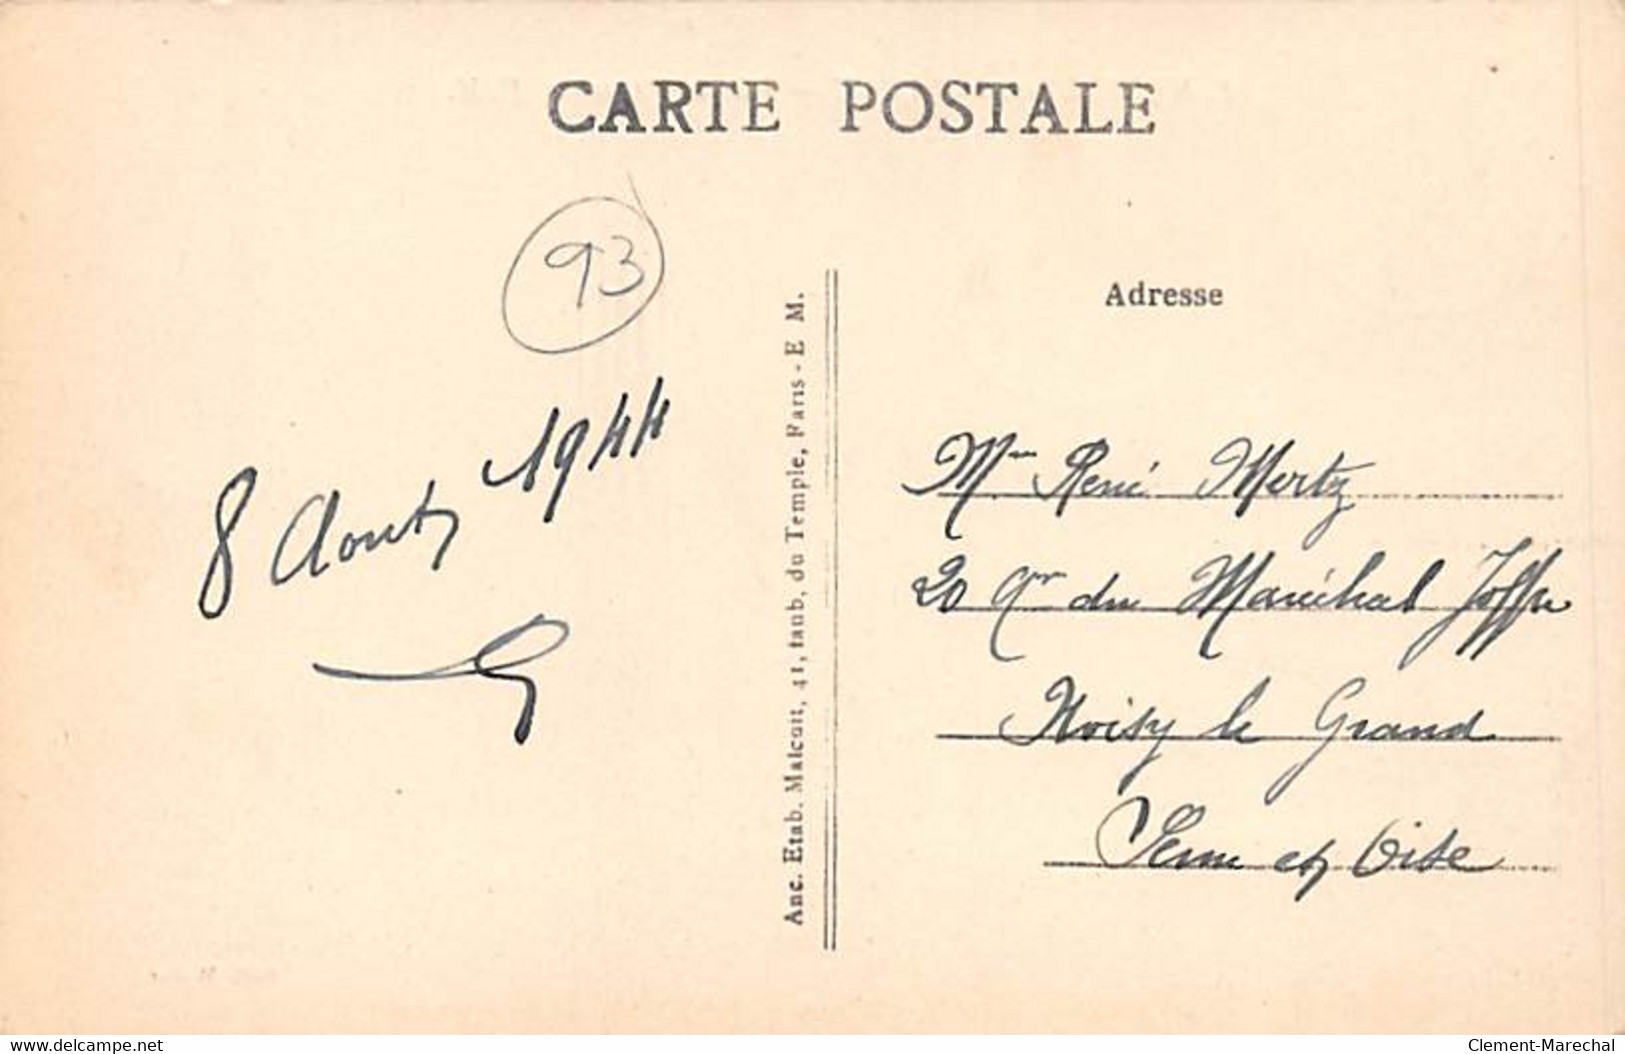 CARTE POSTALE
93
8 Aout 1944
Anc. Etab. Malcuit, 41, faub. du Temple, Paris - E M.
Adresse
Mme René Mertz
20 Qr du Maréchal Joffre
Noisy le Grand
Seine et Oise
delcampe.net
Clement-Marechal